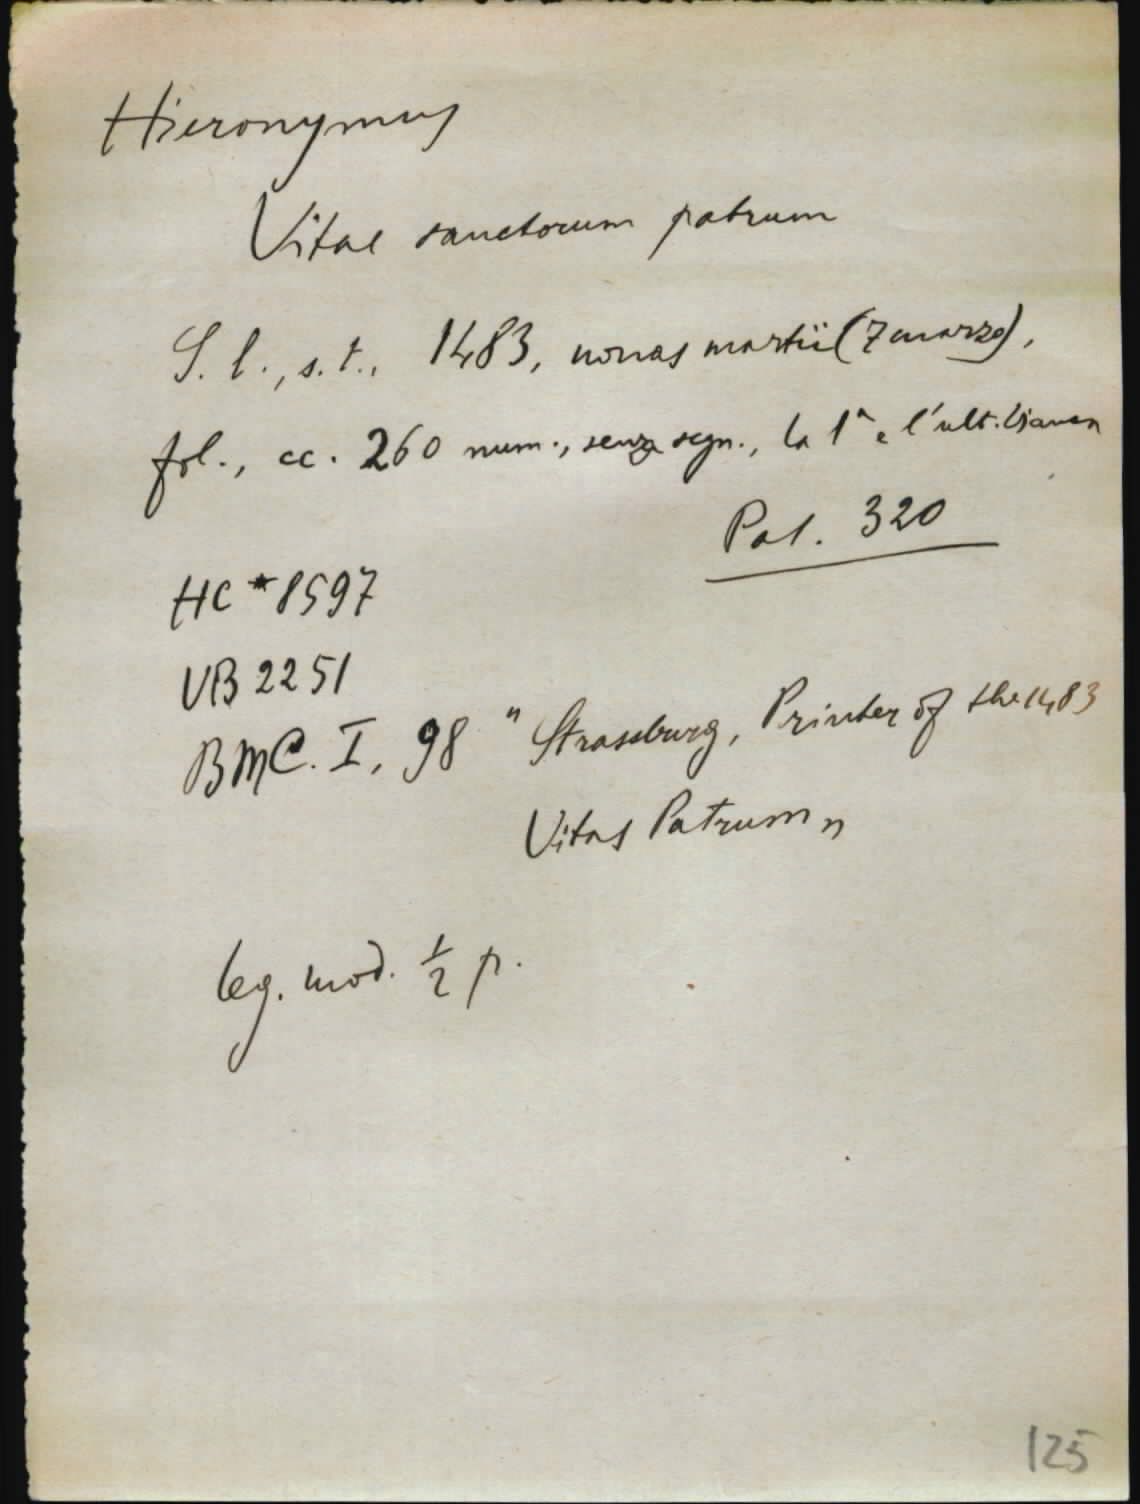 Hieronymus
Vitae sanctorum patrum
S. l., s. t., 1483, nonas martii (7 marzo),
fol., cc. 260 num., senza segn., la 1ª e l'ult. bianca
Pal. 320
HC *8597
VB 2251
BMC. I, 98 "Strassburg, Printer of the 1483
Vitas Patrum"
leg. mod. ½ p.
125